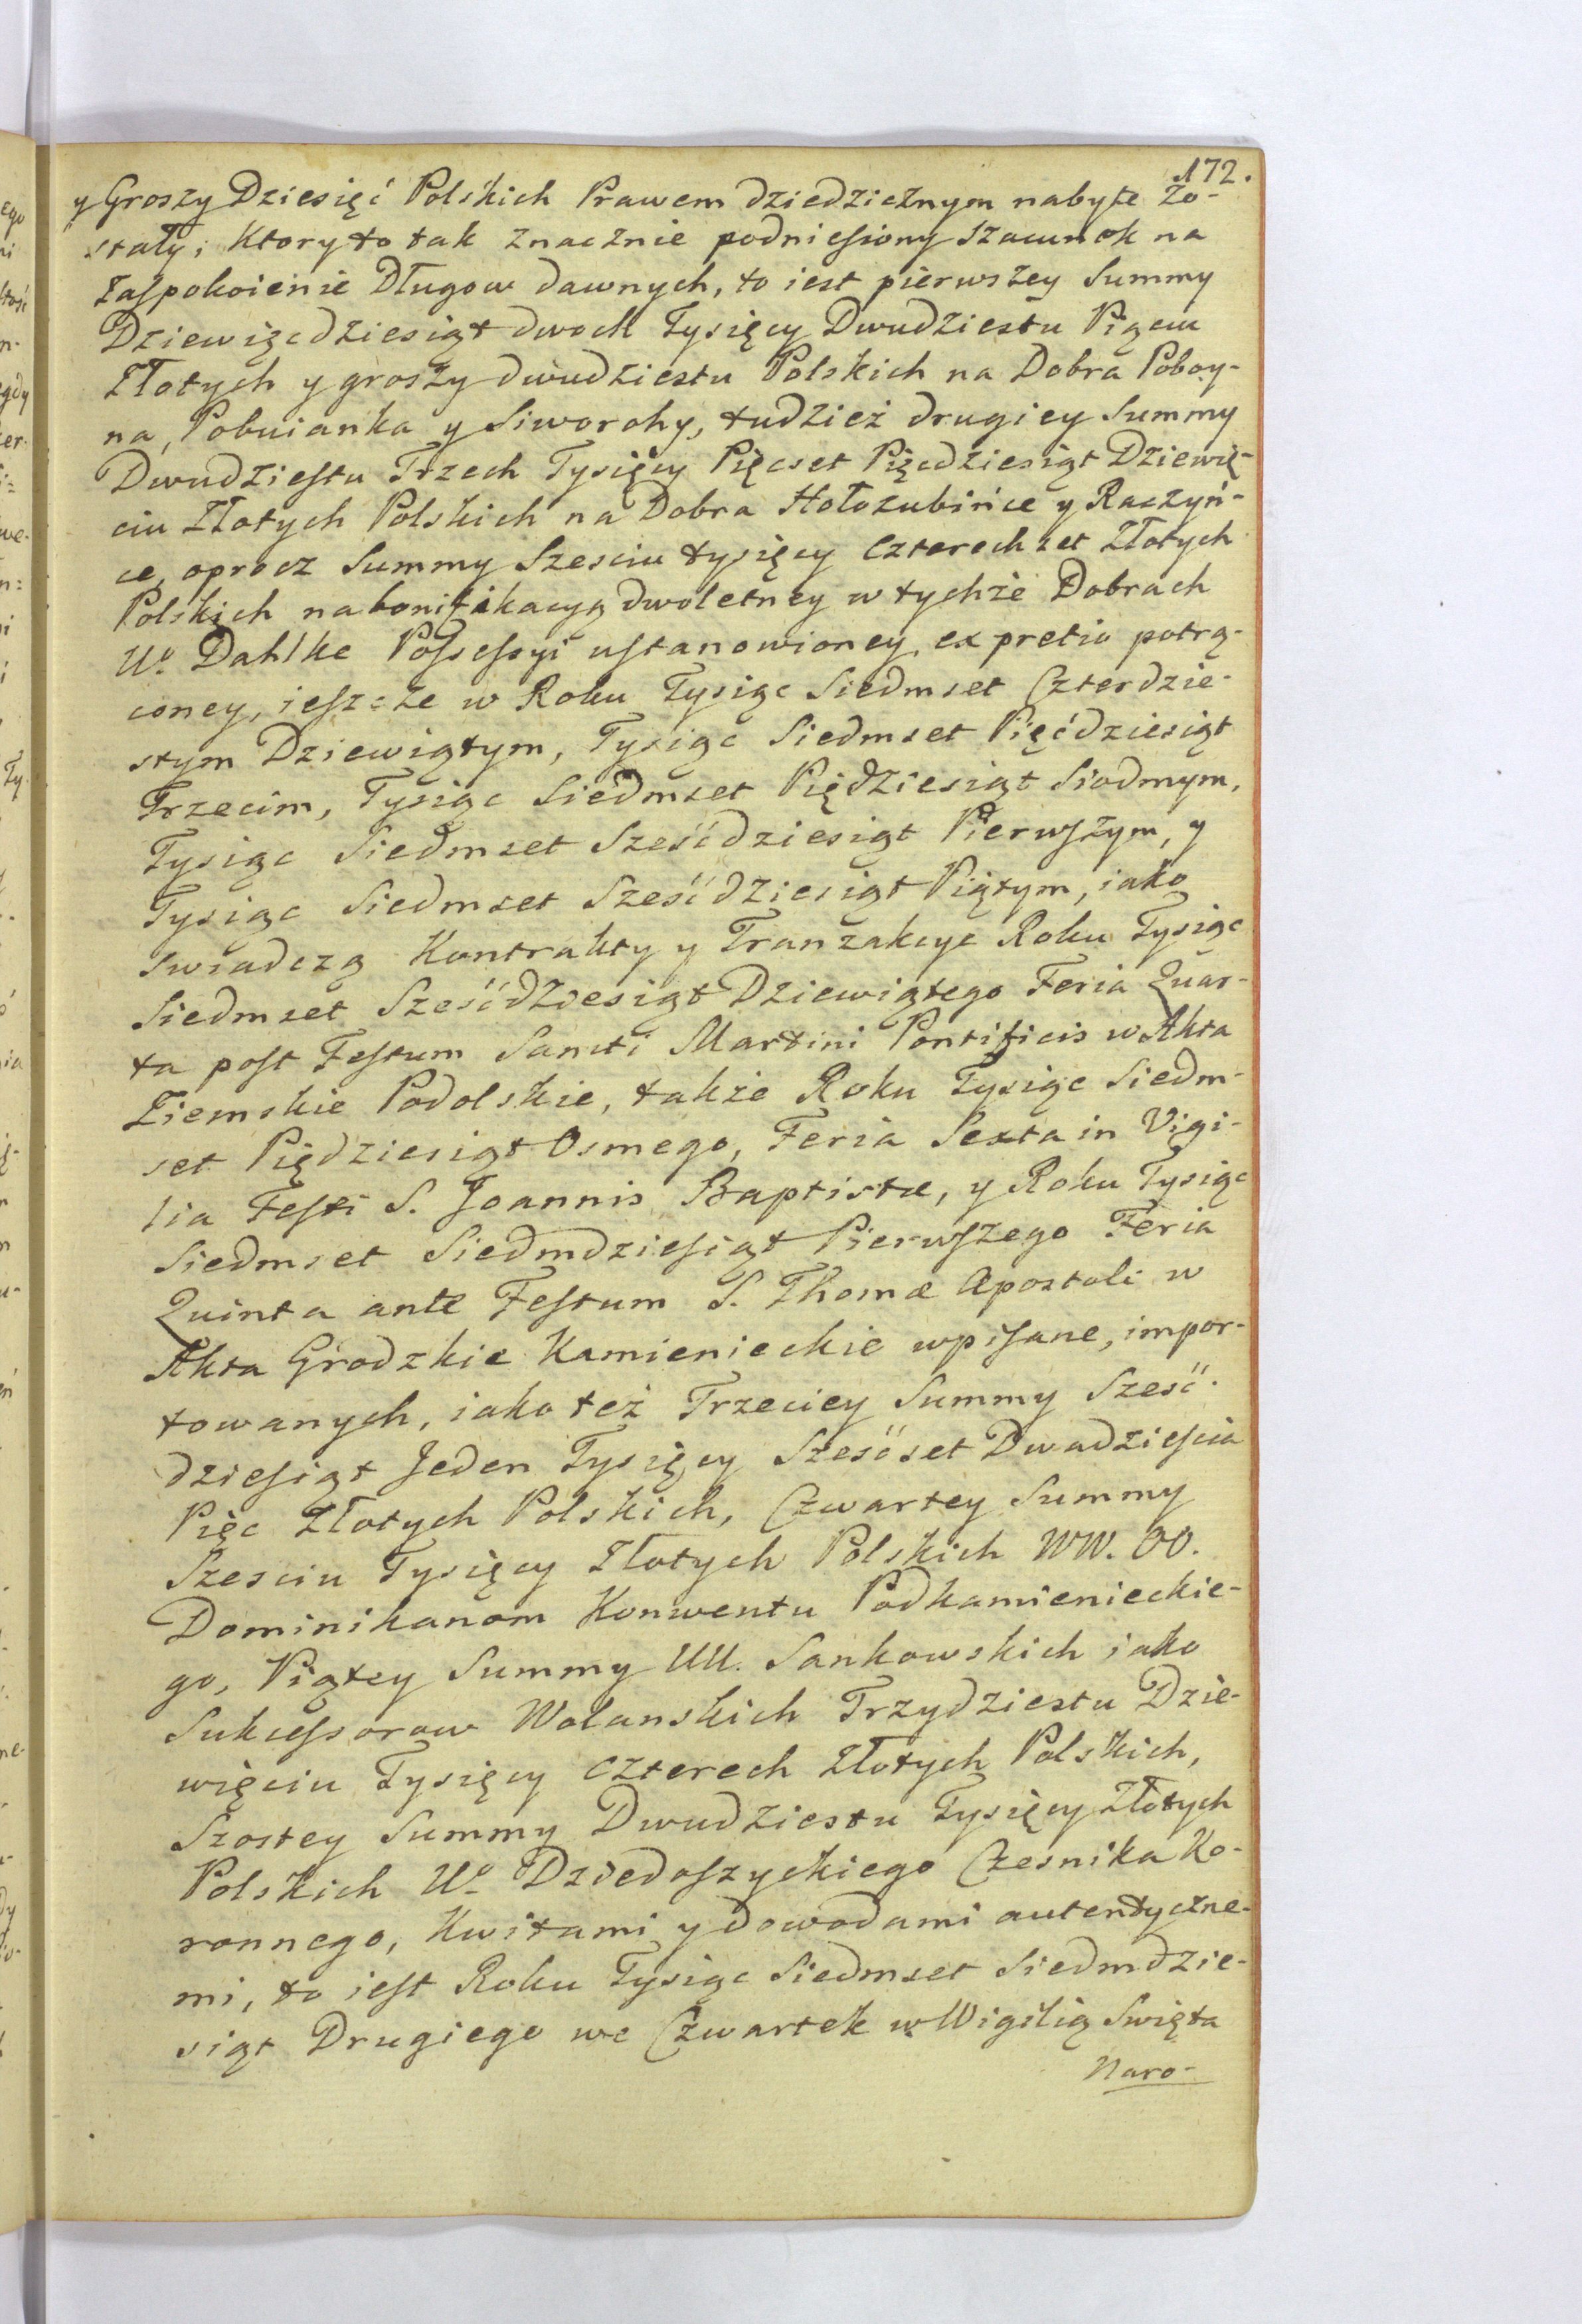 172.
y Groszy Dziesięć Polskich Prawem dziedzicznym nabyte zo-
stały; Ktory to tak znacznie podniesiony szacunek na
zaspokoienie Długow dawnych, to iest pierwszey Summy
Dziewięcdziesiąt dwoch Tysięcy Dwudziestu Pięciu
Złotych y groszy dwudziestu Polskich na Dobra Poboy-
na, Pobuianka y Siworohy, tudzież drugiey Summy
Dwudziestu Trzech Tysięcy Pięcset Pięcdziesiąt Dziewię-
ciu Złotych Polskich na Dobra Hołozubińce y Raczyń-
ce, oprocz Summy Szesciu tysięcy czterechset Złotych
Polskich na bonifikacyą dwoletney w tychże Dobrach
Uo. Dahlke Possessyi ustanowioney, ex pretio potrą-
coney, ieszcze w Roku Tysiąc Siedmset Czterdzie-
stym Dziewiątym, Tysiąc Siedmset Pięćdziesiąt
Trzecim, Tysiąc Siedmset Piędziesiąt Siodmym,
Tysiąc Siedmset Sześćdziesiąt Pierwszym, y
Tysiąc Siedmset Sześćdziesiąt Piątym, iako
swiadczą Kontrakty y Tranzakcye Roku Tysiąc
Siedmset Sześćdziesiąt Dziewiątego Feria Quar-
ta post Festum Sancti Martini Pontificis w Akta
Ziemskie Podolskie, także Roku Tysiąc Siedm-
set Piędziesiąt Osmego, Feria Sexta in Vigi-
lia Festi S. Joannis Baptistæ, y Roku Tysiąc
Siedmset Siedmdziesiąt Pierwszego Feria
Quinta ante Festum S. Thomæ Apostoli w
Akta Grodzkie Kamienieckie wpisane, impor-
towanych, iako też Trzeciey Summy Sześć-
dziesiąt Jeden Tysięcy Sześćset Dwadziescia
Pięc Złotych Polskich, Czwartey Summy
Szesciu Tysięcy Złotych Polskich WW. OO.
Dominikanom Konwentu Podkamienieckie-
go, Piątey Summy UU. Sankowskich iako
Sukcessorow Wolanskich Trzydziestu Dzie-
więciu Tysięcy czterech Złotych Polskich,
Szostey Summy Dwudziestu Tysięcy Złotych
Polskich Uo. Dziedoszyckiego Czesnika Ko-
ronnego, Kwitami y dowodami autentyczne-
mi, to iest Roku Tysiąc Siedmset Siedmdzie-
siąt Drugiego we Czwartek w Wigilią Swięta
Naro-